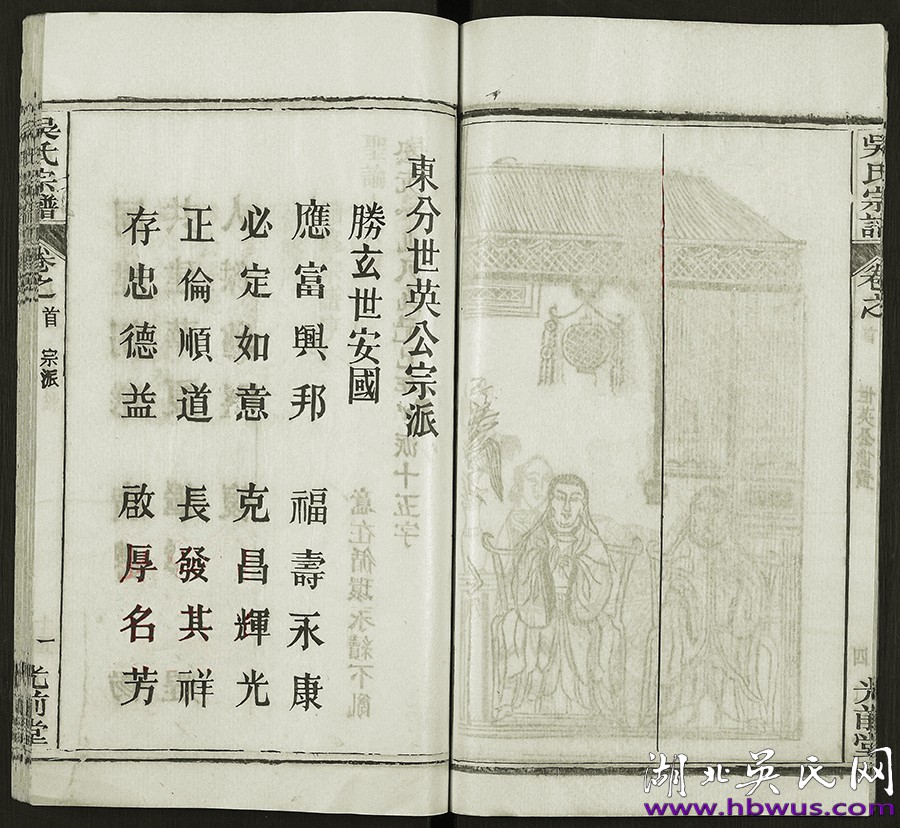 東分世英公宗派
勝玄世安國
應富興邦 福壽永康
必定如意 克昌輝光
正倫順道 長發其祥
存忠德益 啟厚名芳
吳氏宗譜 卷之首 宗派 一 光前堂
吳氏宗譜 卷之首 四 光前堂
湖北吳氏网
www.hbwus.com